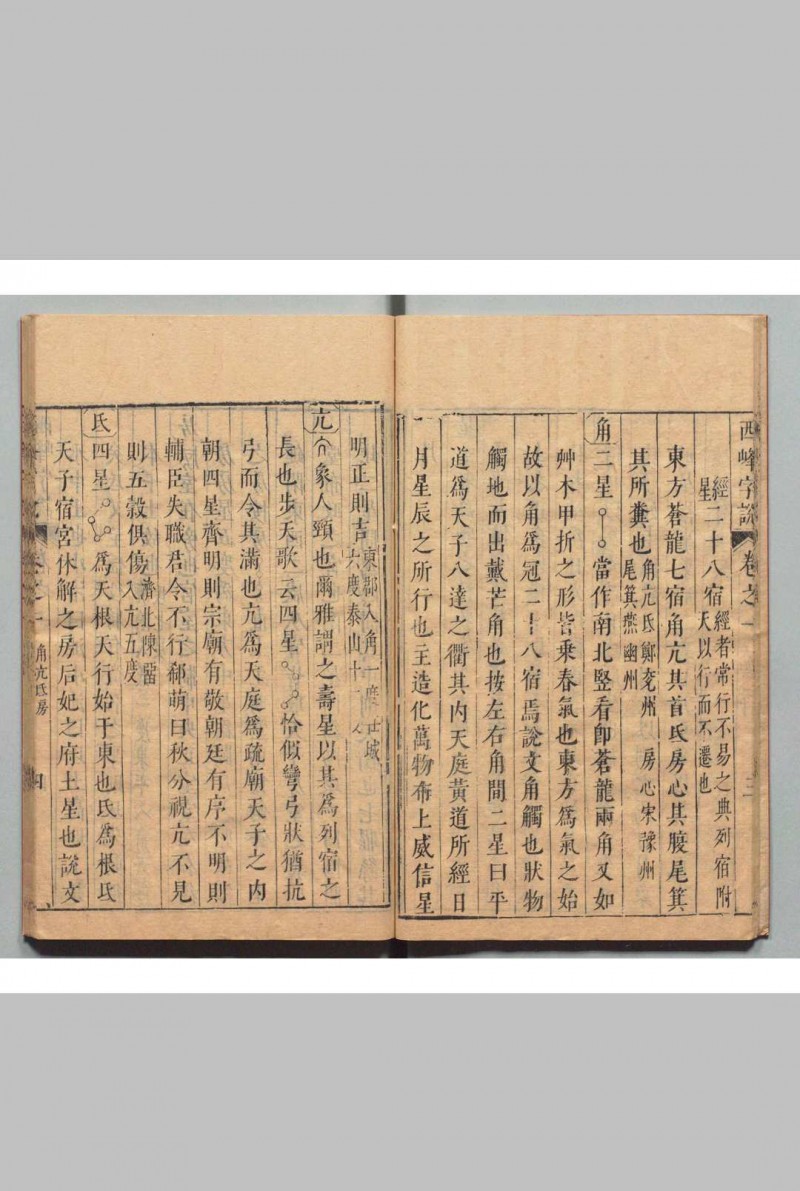 西峰字說 卷之一 三
經星二十八宿 經者常行不易之典列宿附天以行而不遷也
東方蒼龍七宿角亢其首氐房心其腹尾箕
其所糞也 角亢氐鄭兗州 房心宋豫州 尾箕燕幽州
角 二星 當作南北竪看卽蒼龍兩角又如
艸木甲折之形皆乗春氣也東方爲氣之始
故以角爲冠二十八宿焉說文角觸也狀物
觸地而出戴芒角也按左右角間二星曰平
道爲天子八達之衢其内天庭黃道所經日
月星辰之所行也主造化萬物布上威信星
明正則吉 東郡入角一度 六度泰山十
亢 象人頸也爾雅謂之壽星以其爲列宿之
長也步天歌云四星 恰似彎弓狀猶抗
弓而令其滿也亢爲天庭爲疏廟天子之内
朝四星齊明則宗廟有敬朝廷有序不明則
輔臣失職君令不行郗萌曰秋分視亢不見
則五穀俱傷 濟北陳畱入亢五度
氐 四星 爲天根天行始于東也氐爲根氐
天子宿宮休解之房后妃之府土星也說文
卷之一 角亢氐房 四